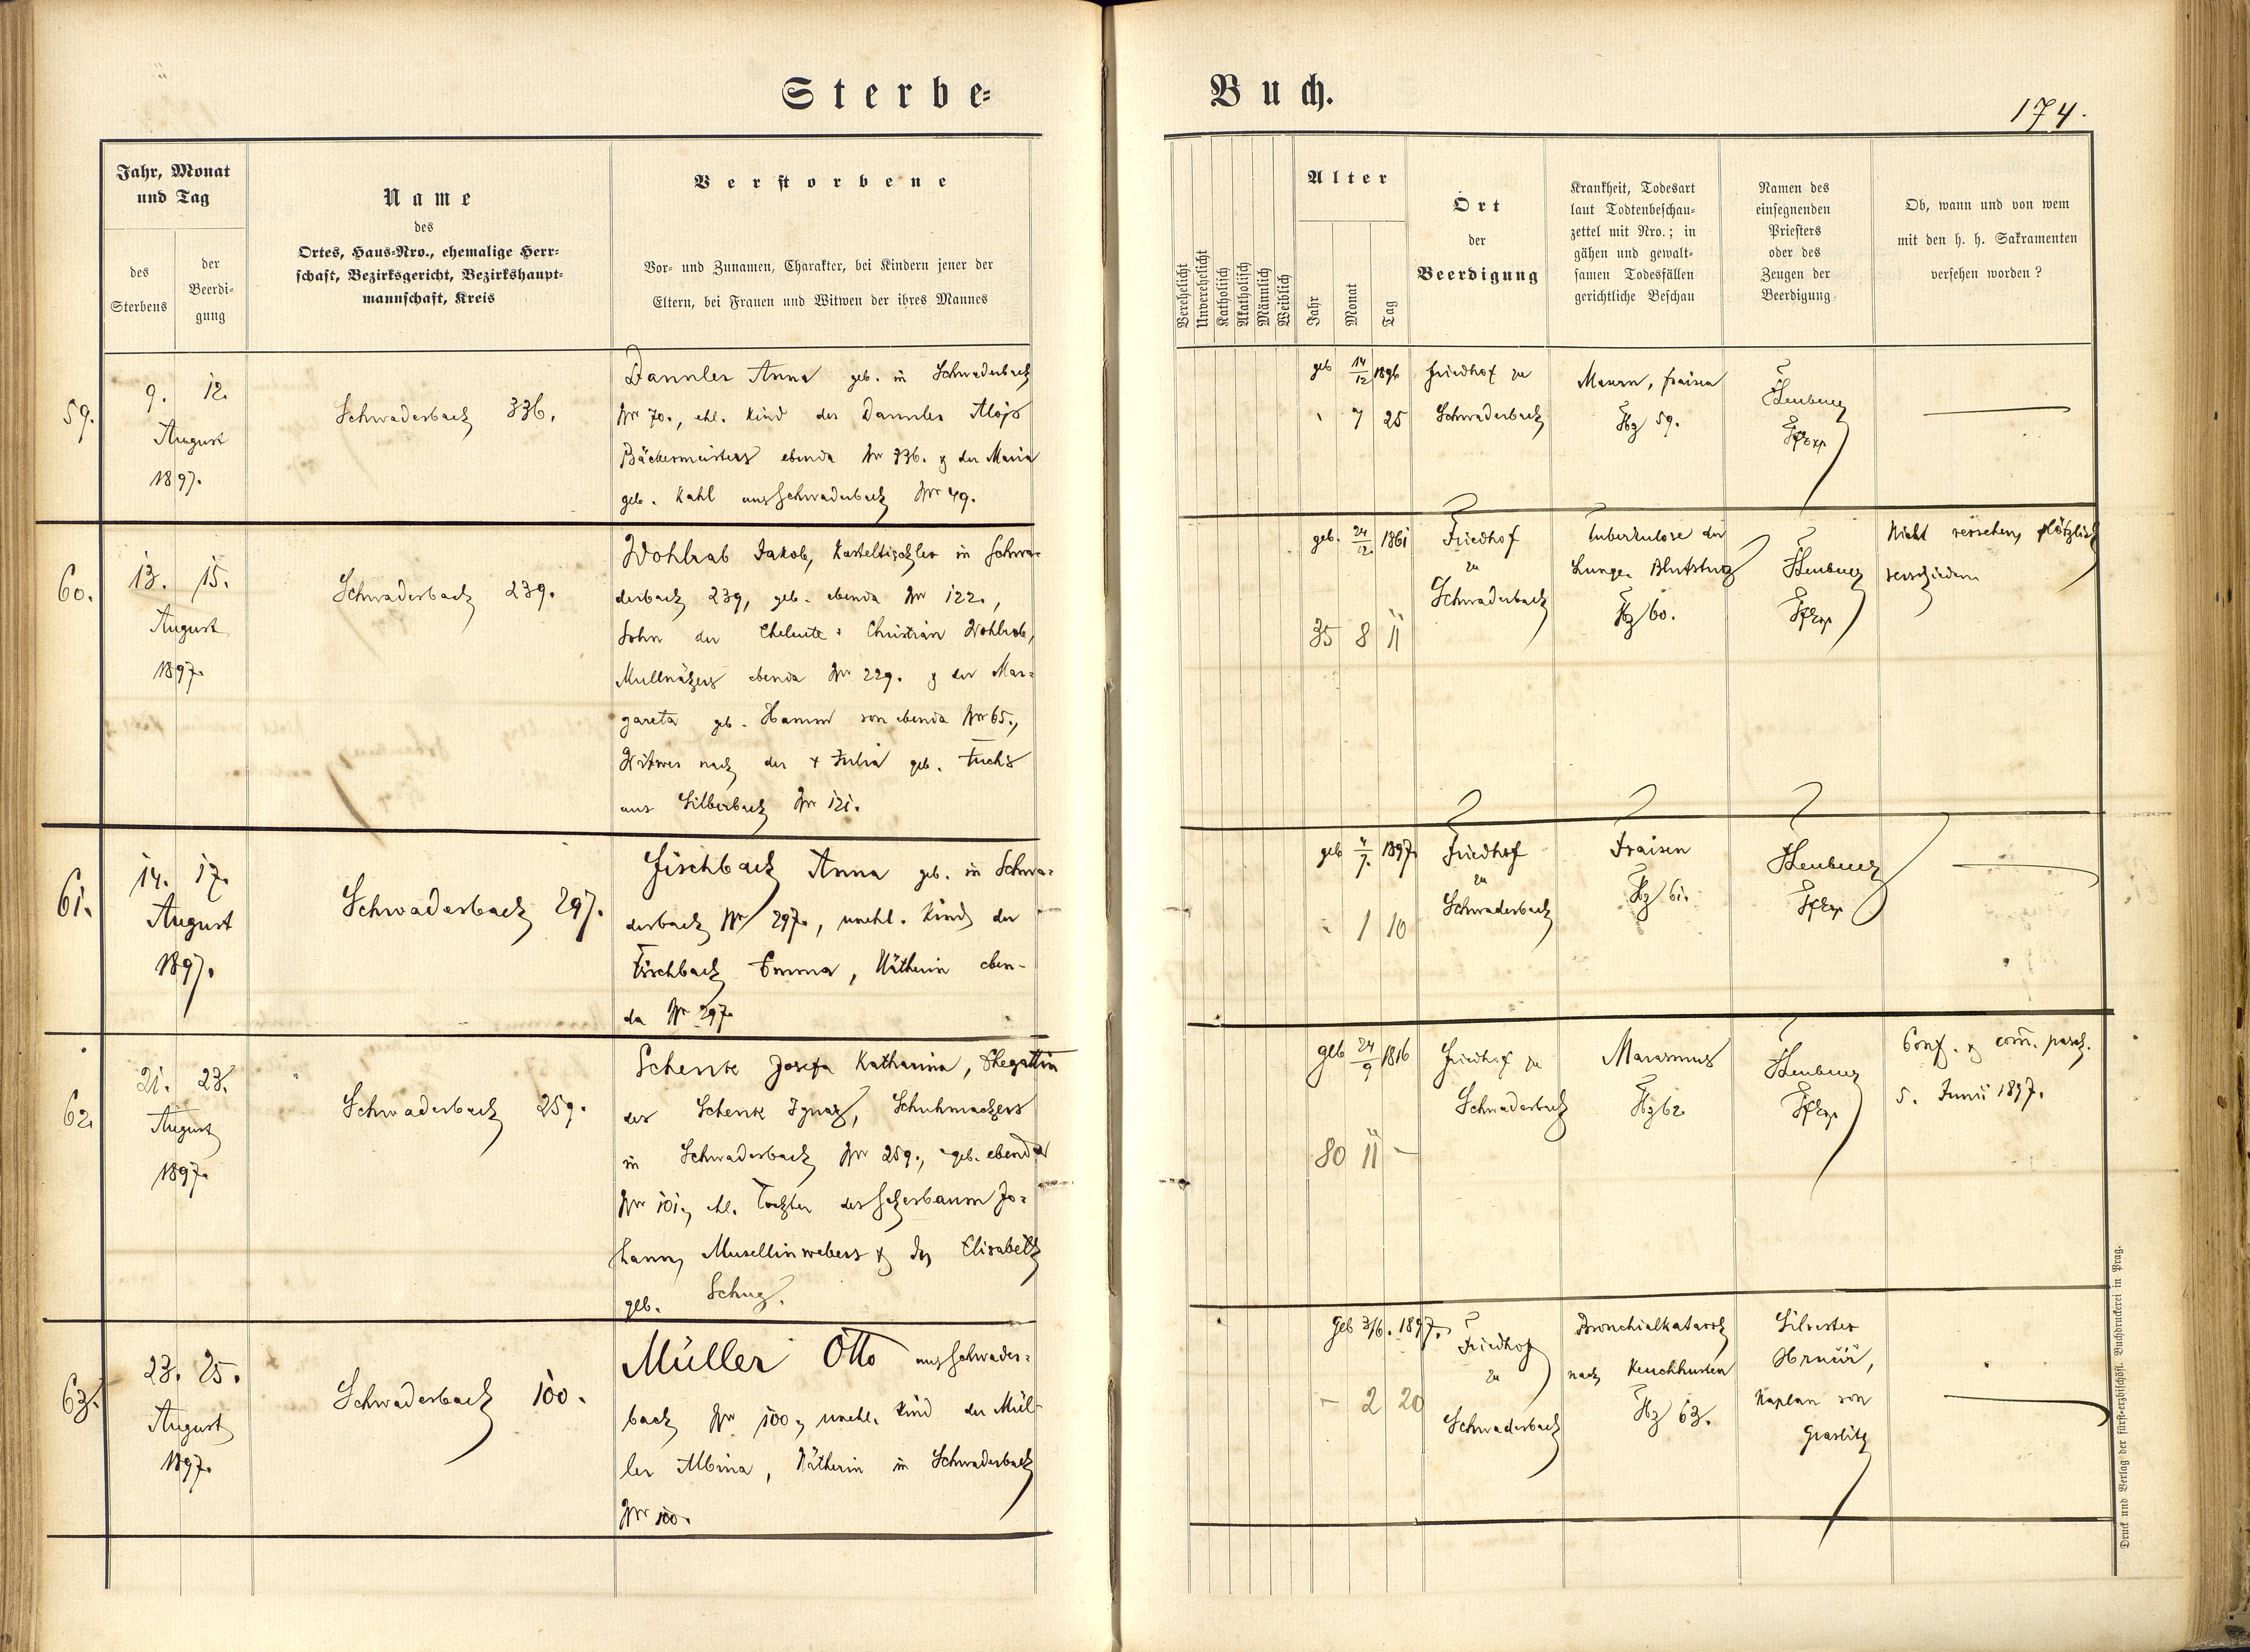 Sterbe=
Buch.
174.
Jahr, Monat
und Tag
des
Sterbens
der
Beerdi=
gung
Name
des
Ortes, Haus-Nro., ehemalige Herr=
schaft, Bezirksgericht, Bezirkshaupt=
mannschaft, Kreis
Verstorbene
Vor- und Zunamen, Charakter, bei Kindern jener der
Eltern, bei Frauen und Witwen der ihres Mannes
Verehelicht
Unverehelicht
Katholisch
Akatholisch
Männlich
Weiblich
Alter
Jahr
Monat
Tag
Ort
der
Beerdigung
Krankheit, Todesart
laut Todtenbeschau=
zettel mit Nro.; in
gähen und gewalt=
samen Todesfällen
gerichtliche Beschau
Namen des
einsegnenden
Priesters
oder des
Zeugen der
Beerdigung
Ob, wann und von wem
mit den h. h. Sakramenten
versehen worden?
59.
9. 12.
August
1897.
Schwaderbach 336.
Dannler Anna geb. in Schwaderbach
Nr 70., ehl. Kind des Dannler Alojs
Bäckermeisters ebenda Nr 336. & der Maria
geb. Kahl aus Schwaderbach Nr 49.
geb 14/12 1896
7 25
Friedhof zu
Schwaderbach
Masern, Fraisen
Tbz 59.
60.
13. 15.
August
1897.
Schwaderbach 239.
Wohlrab Jakob, Kasteltischler in Schwa=
derbach 239, geb. ebenda Nr 122.,
Sohn der Eheleute: Christian Wohlrab,
Mullnähers ebenda Nr 229. & der Mar=
gareta geb. Hamm von ebenda Nr 65.,
Witwer nach der + Julia geb. Fuchs
aus Silberbach Nr 121.
geb. 24/12. 1861
35 8 11
Friedhof
zu
Schwaderbach
Tuberkulose der
Lunge, Blutsturz
Tbz 60.
Nicht versehen, plötzlich
verschieden
61.
14. 17.
August
1897.
Schwaderbach 297.
Fischbach Anna geb. in Schwa=
derbach Nr 297., unehl. Kind der
Fischbach Emma, Nätherin eben-
da Nr 297.
geb 4/7. 1897
1 10
Friedhof
zu
Schwaderbach
Fraisen
Tbz 61.
62.
21. 23.
August
1897.
Schwaderbach 259.
Schenk Josefa Katharina, Ehegattin
des Schenk Ignaz, Schuhmachers
in Schwaderbach Nr 259., geb. ebenda
Nr 101., ehl. Tochter des Scherbaum Jo=
hann, Musellinwebers & der Elisabeth
geb. Schug.
geb 24/9 1816
80 11 -
Friedhof zu
Schwaderbach
Marasmus
Tbz 62.
Conf. & com. pasch.
5. Junii 1897.
63.
23. 25.
August
1897.
Schwaderbach 100.
Müller Otto aus Schwader=
bach Nr 100., unehl. Kind der Mül-
ler Albina, Nätherin in Schwaderbach
Nr 100.
geb 3/6. 1897.
- 2 20
Friedhof
zu
Schwaderbach
Bronchialkatarrh
nach Keuchhusten
Tbz 63.
Silvester
Kaplan von
Graslitz
Druck und Verlag der fürst-erzbischöfl. Buchdruckerei in Prag.